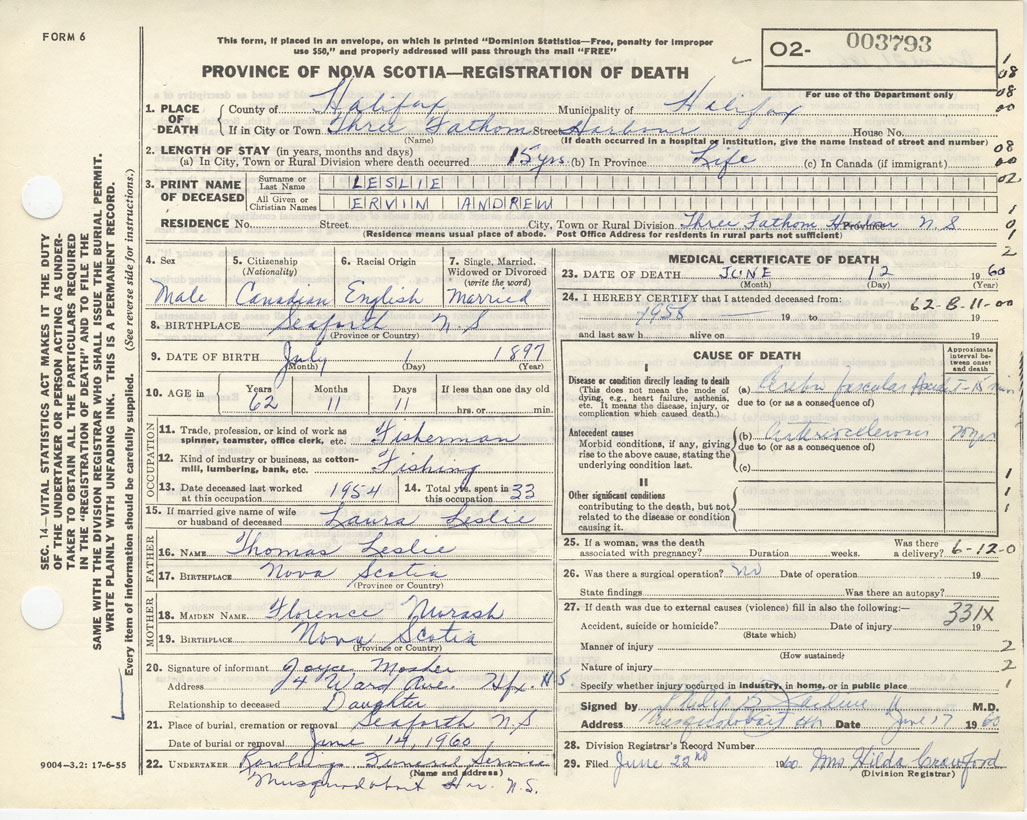 FORM 6
This form, if placed in an envelope, on which is printed "Dominion Statistics—Free, penalty for improper
use $50," and properly addressed will pass through the mail "FREE"
O2- 003793
For use of the Department only
PROVINCE OF NOVA SCOTIA—REGISTRATION OF DEATH
1. PLACE OF DEATH County of Halifax Municipality of Halifax
If in City or Town Three Fathom Street Harbour House No.
(Name) (If death occurred in a hospital or institution, give the name instead of street and number)
2. LENGTH OF STAY (in years, months and days)
(a) In City, Town or Rural Division where death occurred 15 yrs. (b) In Province Life (c) In Canada (if immigrant)
3. PRINT NAME OF DECEASED Surname or Last Name LESLIE
All Given or Christian Names ERVIN ANDREW
RESIDENCE No. Street City, Town or Rural Division Three Fathom Harbour Province N.S
(Residence means usual place of abode. Post Office Address for residents in rural parts not sufficient)
4. Sex Male
5. Citizenship (Nationality) Canadian
6. Racial Origin English
7. Single, Married, Widowed or Divorced (write the word) Married
8. BIRTHPLACE Seaforth N.S
(Province or Country)
9. DATE OF BIRTH July 1 1897
(Month) (Day) (Year)
10. AGE in Years 62 Months 11 Days 11 If less than one day old hrs. or min.
OCCUPATION
11. Trade, profession, or kind of work as spinner, teamster, office clerk, etc. Fisherman
12. Kind of industry or business, as cotton-mill, lumbering, bank, etc. Fishing
13. Date deceased last worked at this occupation 1954
14. Total yrs. spent in this occupation 33
15. If married give name of wife or husband of deceased Laura Leslie
FATHER
16. NAME Thomas Leslie
17. BIRTHPLACE Nova Scotia
(Province or Country)
MOTHER
18. MAIDEN NAME Florence Morash
19. BIRTHPLACE Nova Scotia
(Province or Country)
20. Signature of informant Joyce Mosher
Address 74 Ward Ave. Hfx. N.S.
Relationship to deceased Daughter
21. Place of burial, cremation or removal Seaforth N.S
Date of burial or removal June 14, 1960
22. UNDERTAKER Rowlings Funeral Service
(Name and address)
Musquodoboit Hr. N.S.
9004—3.2: 17-6-55
MEDICAL CERTIFICATE OF DEATH
23. DATE OF DEATH JUNE 12 1960
(Month) (Day) (Year)
24. I HEREBY CERTIFY that I attended deceased from:
62-B-11-00
1958 19 to 19
and last saw h alive on 19
CAUSE OF DEATH
Approximate interval between onset and death
I
Disease or condition directly leading to death
(This does not mean the mode of dying, e.g., heart failure, asthenia, etc. It means the disease, injury, or complication which caused death.)
(a)
due to (or as a consequence of)
Antecedent causes
Morbid conditions, if any, giving rise to the above cause, stating the underlying condition last.
(b)
due to (or as a consequence of)
(c)
II
Other significant conditions
contributing to the death, but not related to the disease or condition causing it.
25. If a woman, was the death associated with pregnancy? Duration weeks. Was there a delivery? 6-12-0
26. Was there a surgical operation? no Date of operation 19
State findings Was there an autopsy?
27. If death was due to external causes (violence) fill in also the following:— 331X
Accident, suicide or homicide? Date of injury 19
(State which)
Manner of injury 2
(How sustained?)
Nature of injury 2
Specify whether injury occurred in industry, in home, or in public place 1
Signed by M.D.
Address Date June 17 1960
28. Division Registrar's Record Number
29. Filed June 22nd 1960 Mrs Hilda Crawford
(Division Registrar)
SEC. 14—VITAL STATISTICS ACT MAKES IT THE DUTY
OF THE UNDERTAKER OR PERSON ACTING AS UNDER-
TAKER TO OBTAIN ALL THE PARTICULARS REQUIRED
IN THE "REGISTRATION OF DEATH" AND FILE THE
SAME WITH THE DIVISION REGISTRAR WHO SHALL ISSUE THE BURIAL PERMIT.
WRITE PLAINLY WITH UNFADING INK. THIS IS A PERMANENT RECORD.
Every item of information should be carefully supplied. (See reverse side for instructions.)
1
08
08
00
08
00
02
1
0
1
2
1
1
1